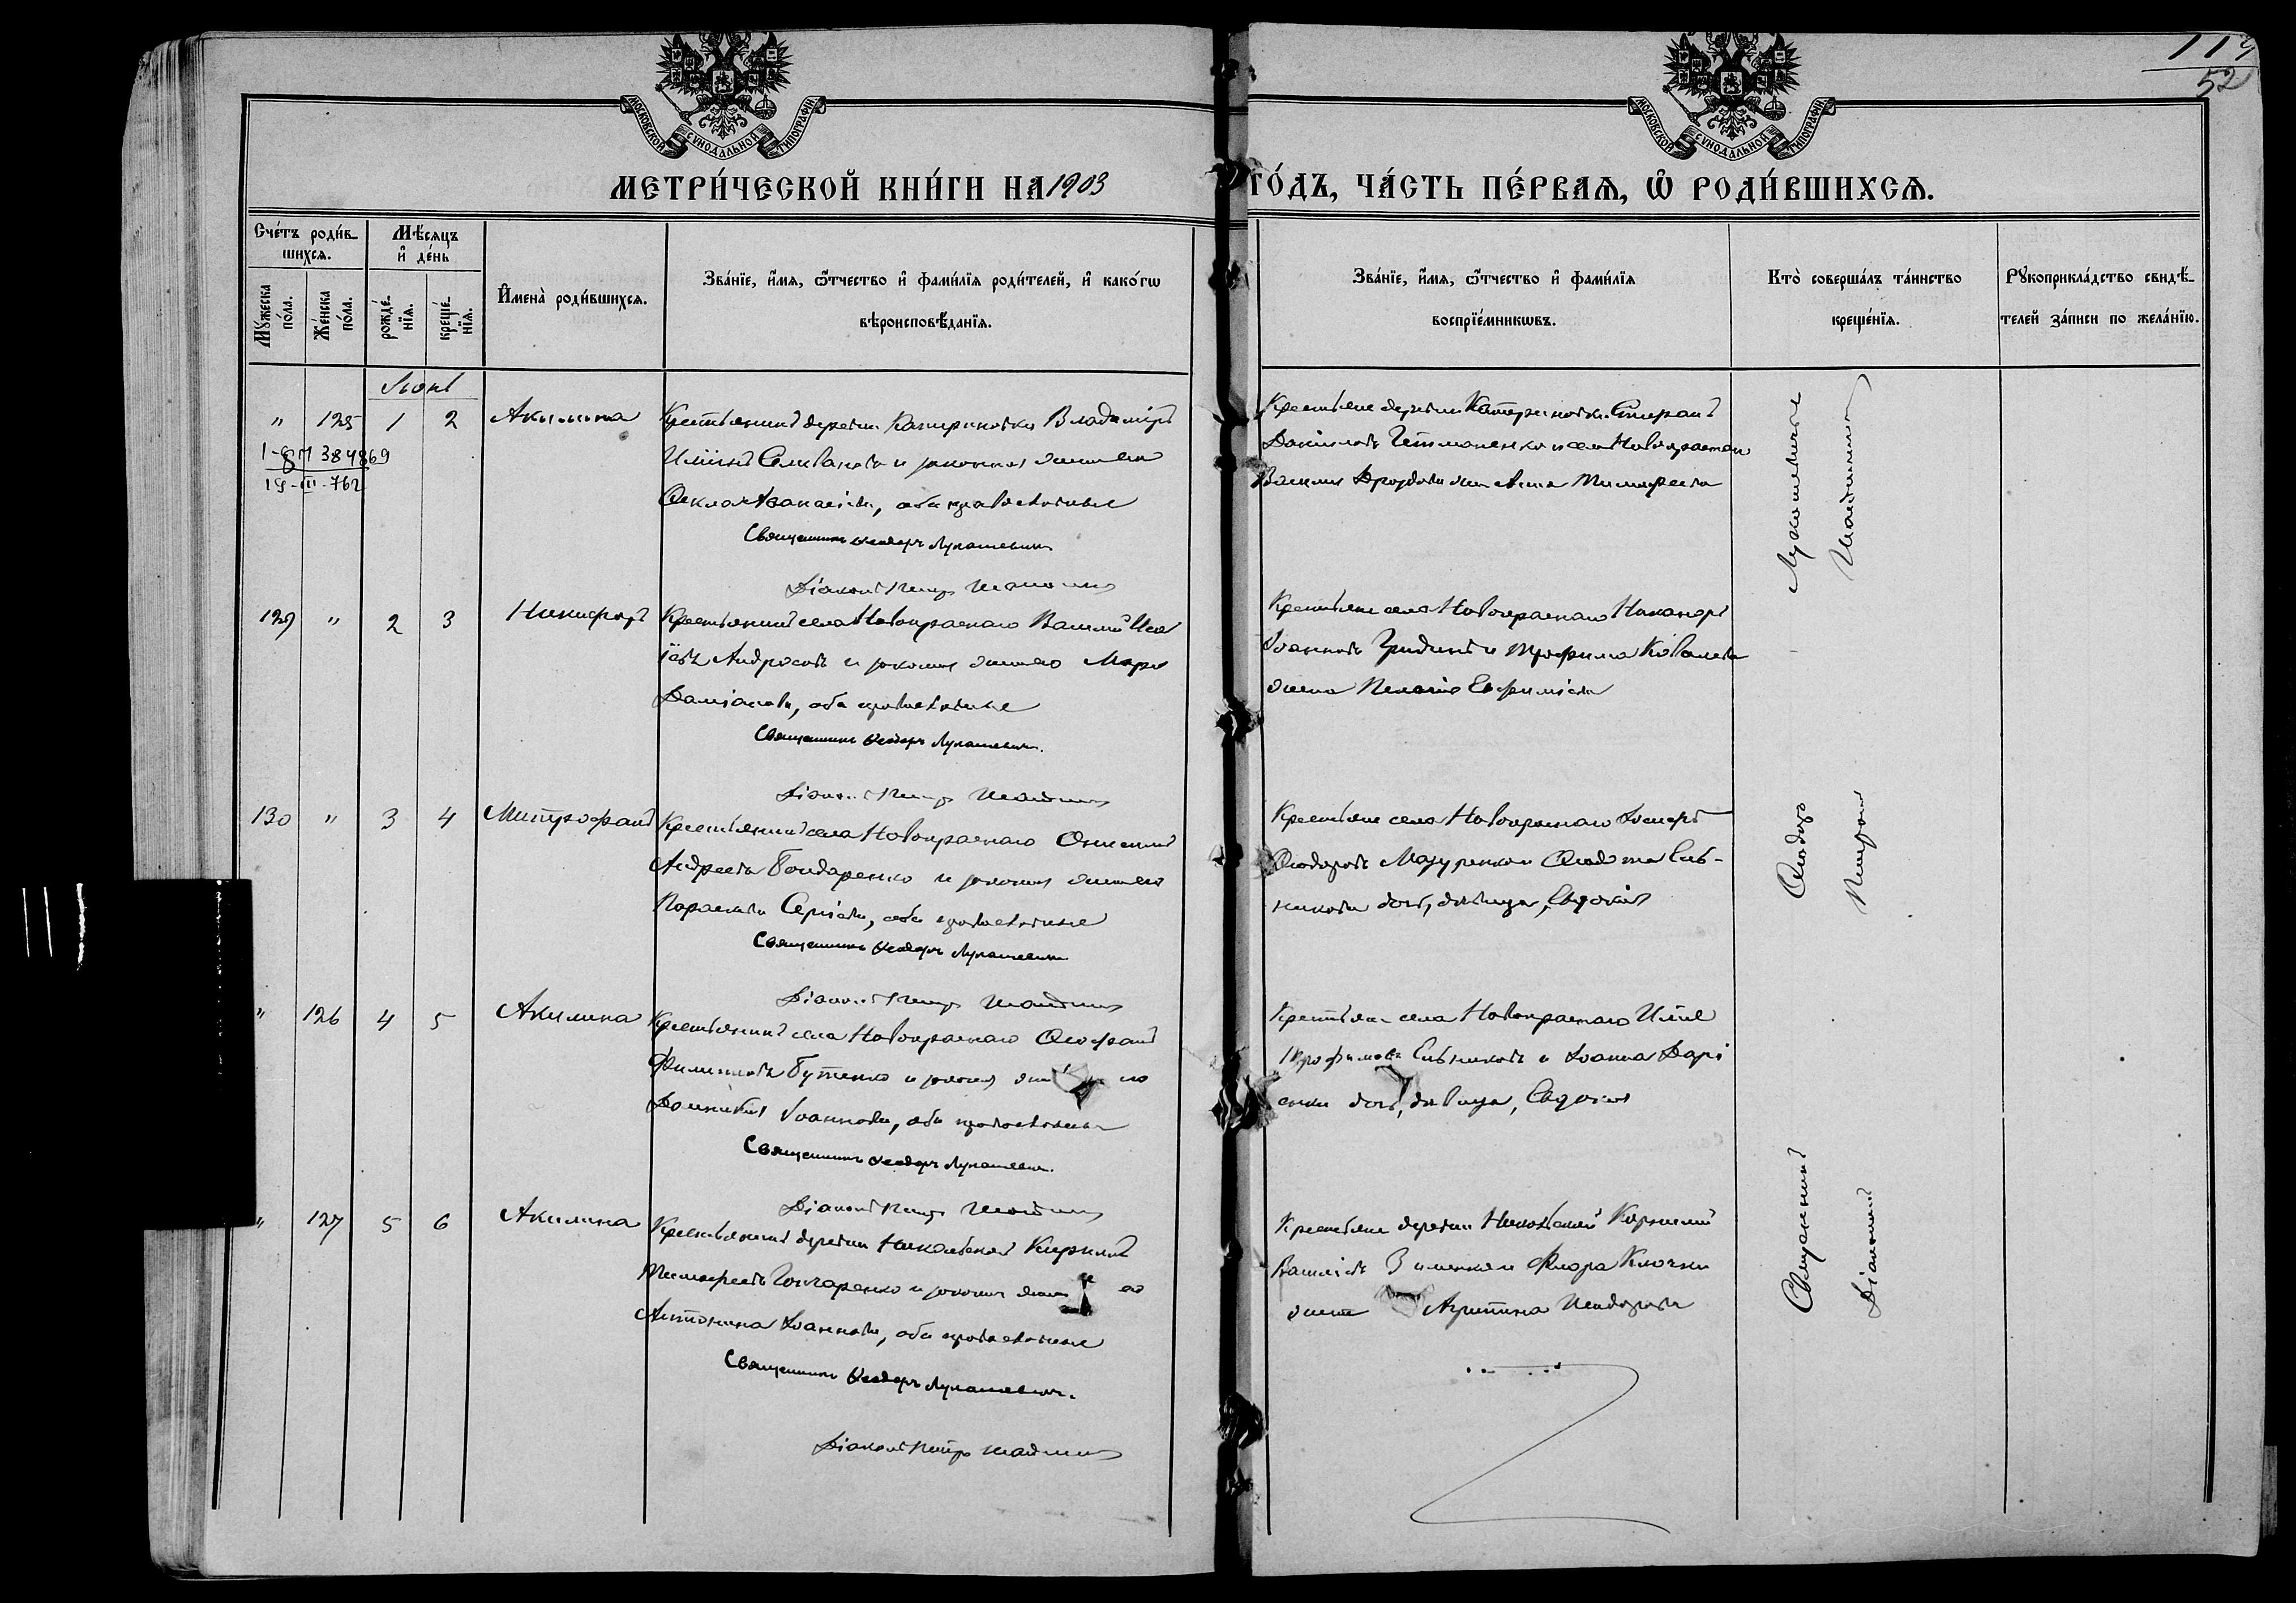 119
52
МОСКОВСКОЙ СѴНОДАЛЬНОЙ ТИПОГРАФІИ
МОСКОВСКОЙ СѴНОДАЛЬНОЙ ТИПОГРАФІИ
МЕТРИ́ЧЕСКОЙ КНИ́ГИ НА 1903
ГО́ДЪ, ЧА́СТЬ ПЕ́РВАѦ, Ѡ РОДИ́ВШИХСѦ.
Сче́тъ роди́в-
шихсѧ.
Мꙋ́жеска
по́ла.
Же́нска
по́ла.
Мѣ́сѧцъ
и҆ де́нь
рожде́-
нїѧ.
креще́-
нїѧ.
И҆мена̀ роди́вшихсѧ.
Зва́нїе, и҆́мѧ, ѻ҆́тчество и҆ фами́лїѧ роди́телей, и҆ како́гѡ
вѣроисповѣ́данїѧ.
Зва́нїе, и҆́мѧ, ѻ҆́тчество и҆ фами́лїѧ
воспрїе́мникѡвъ.
Кто̀ соверша́лъ та́инство
креще́нїѧ.
Рꙋкоприкла́дство свидѣ́-
телей за́писи по жела́нїю.
Іюнь
" 125 1 2 Акилина
384869
19-III-762
Крестьянинъ деревни Катериновки Владиміръ
Иліинъ Селивановъ и законная жена его
Ѳекла Аѳанасіева, оба православные
Священникъ Ѳеодоръ Лукашевичъ
Діаконъ Петръ
Крестьяне деревни Катериновки Спиридонъ
Даніиловъ Гетманенко и села Новокраснаго
Василія Дроздова жена Тимоѳеева
129 " 2 3 Никифоръ
Крестьянинъ села Новокраснаго Василій Иса
іевъ Андросовъ и законная жена его Марѳа
Даміанова, оба православные
Священникъ Ѳеодоръ Лукашевичъ.
Діаконъ Петръ
Крестьяне села Новокраснаго Никаноръ
Іоанновъ Гридинъ и Трофима Ковалева
жена Пелагія Евфиміева
130 " 3 4 Митрофанъ
Крестьянинъ села Новокраснаго Онисимъ
Андреевъ Бондаренко и законная жена его
Параскева Сергіева, оба православные
Священникъ Ѳеодоръ Лукашевичъ
Діаконъ Петръ
Крестьяне села Новокраснаго
Ѳеодоровъ Мазуренко и Ѳеодота Сит-
никова дочь, дѣвица, Евдокія
" 126 4 5 Акилина
Крестьянинъ села Новокраснаго Ѳеофанъ
Филипповъ Бутенко и законная жена его
Домникія Іоаннова, оба православные
Священникъ Ѳеодоръ Лукашевичъ.
Діаконъ Петръ
Крестьяне села Новокраснаго Илія
Трофимовъ Ситниковъ и Іоанна Дарі
енки дочь, дѣвица, Евдокія
" 127 5 6 Акилина
Крестьянинъ деревни Никольской Кириллъ
Тимоѳеевъ Гончаренко и законная жена его
Антонина Іоаннова, оба православные
Священникъ Ѳеодоръ Лукашевичъ.
Діаконъ Петръ
Крестьяне деревни Никольской Корнилій
Василіевъ Зименко и Флора Клочки
жена Агрипина Ѳеодорова
Священникъ Ѳеодоръ Лукашевичъ
Діаконъ Петръ